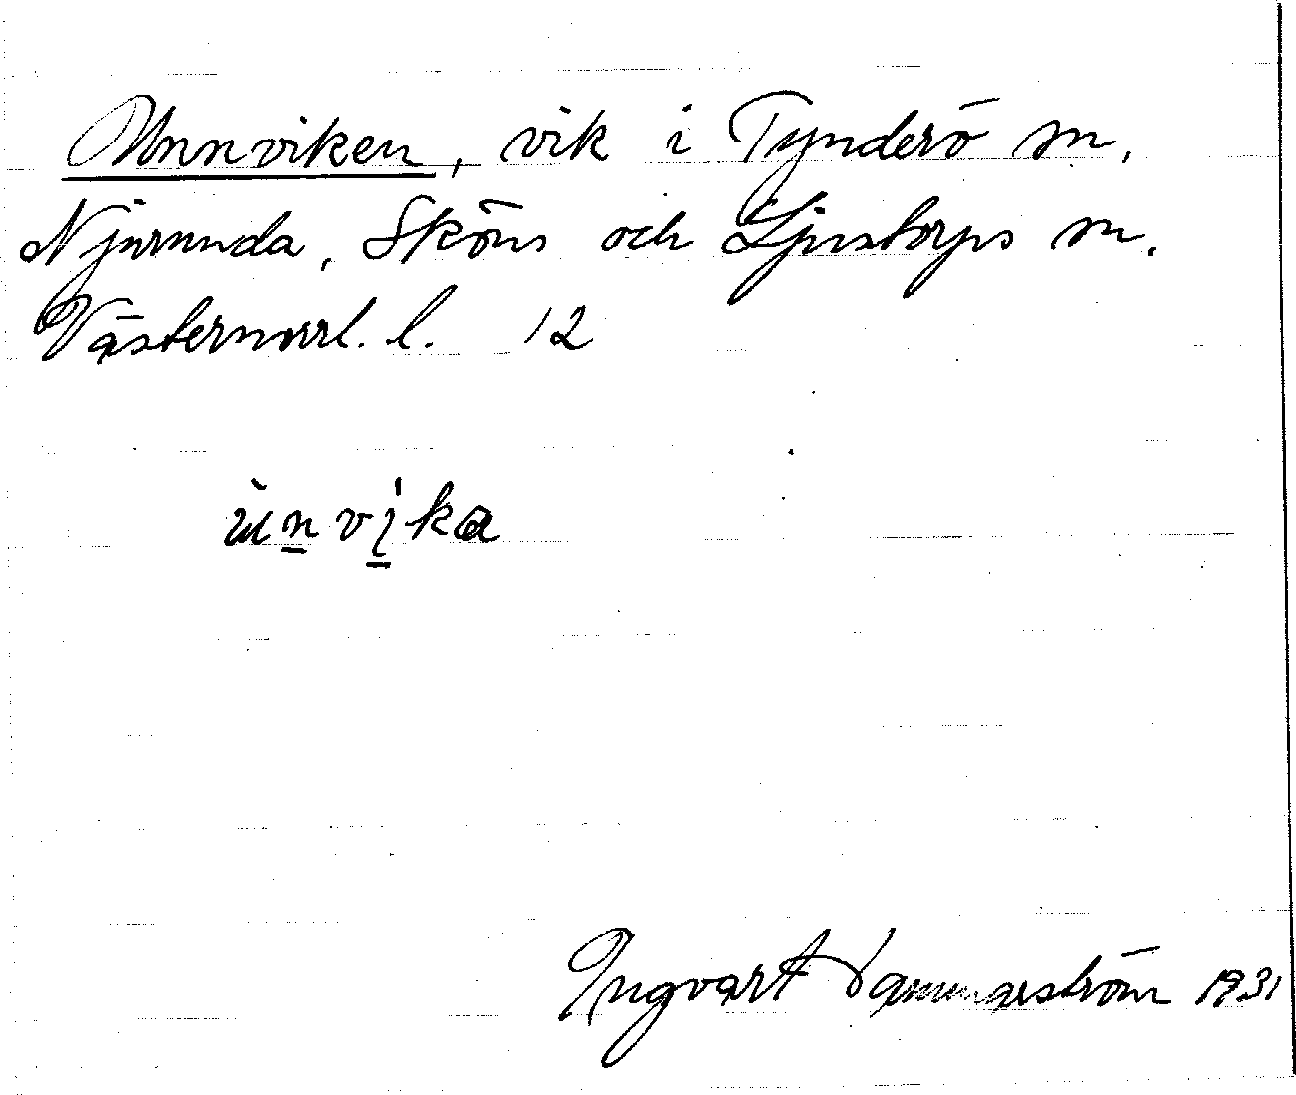 Unnviken, vik i Tynderö sn,
Njurunda, Sköns och Ljustorps sn.
Västernorrl. l. 12
ùnvíka
Ingvart 1931